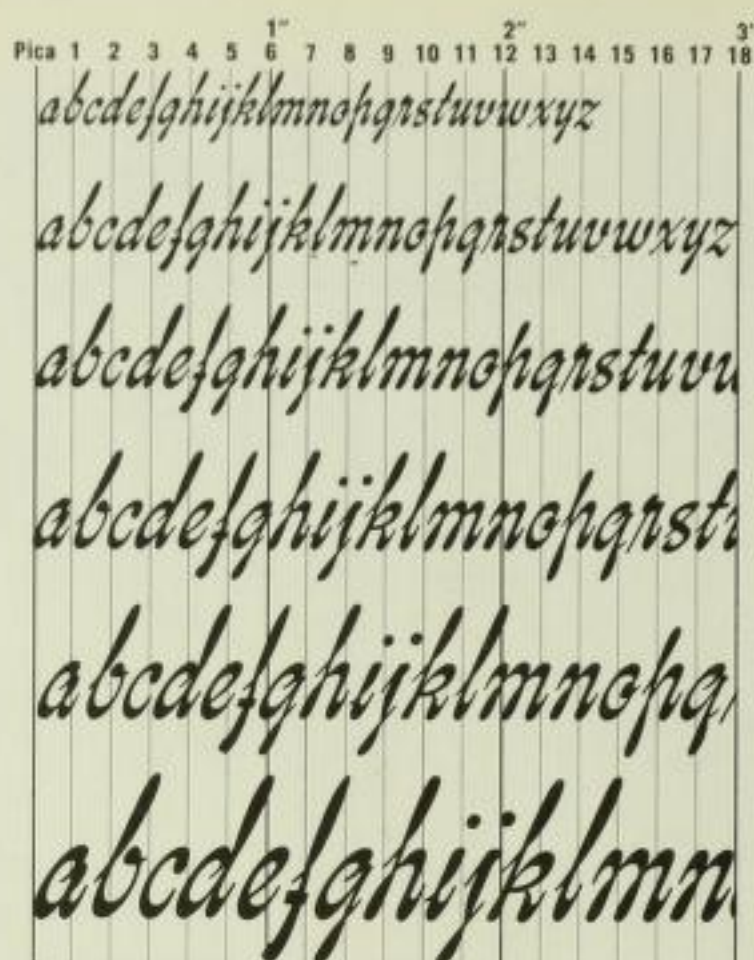 1" 2" 3"
Pica 1 2 3 4 5 6 7 8 9 10 11 12 13 14 15 16 17 18
abcdefghijklmnopqrstuvwxyz
abcdefghijklmnopqrstuvwxyz
abcdefghijklmnopqrstuvw
abcdefghijklmnopqrst
abcdefghijklmnopq
abcdefghijklmn